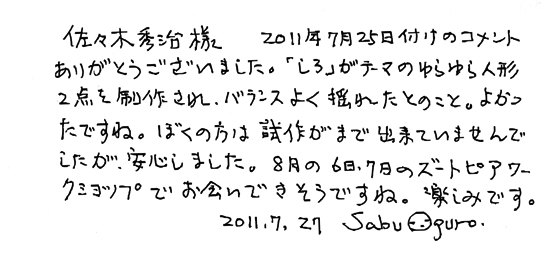 佐々木秀治様 2011年7月25日付けのコメント
ありがとうございました。「しろ」がテーマのゆらゆら人形
2点を制作され、バランスよく揺れたとのこと。よかっ
たですね。ぼくの方は試作がまで出来ていませんで
したが、安心しました。8月の6日、7日のズートピアワー
クショップでお会いできそうですね。楽しみです。
2011.7.27 Sabu Oguro.